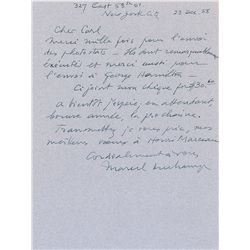 327 East 58th St
New York City 23 Dec. 55
Cher Carl
Merci mille fois pour l'envoi
des photostats - Ils sont remarquablement
exécutés et merci aussi pour
l'envoi à George Hamilton -
Ci joint mon chèque for $30.
A bientôt j'espère, en attendant
bonne année, la prochaine.
Transmettez je vous prie, mes
meilleurs vœux à Henri Marceau
Cordialement à vous
Marcel Duchamp